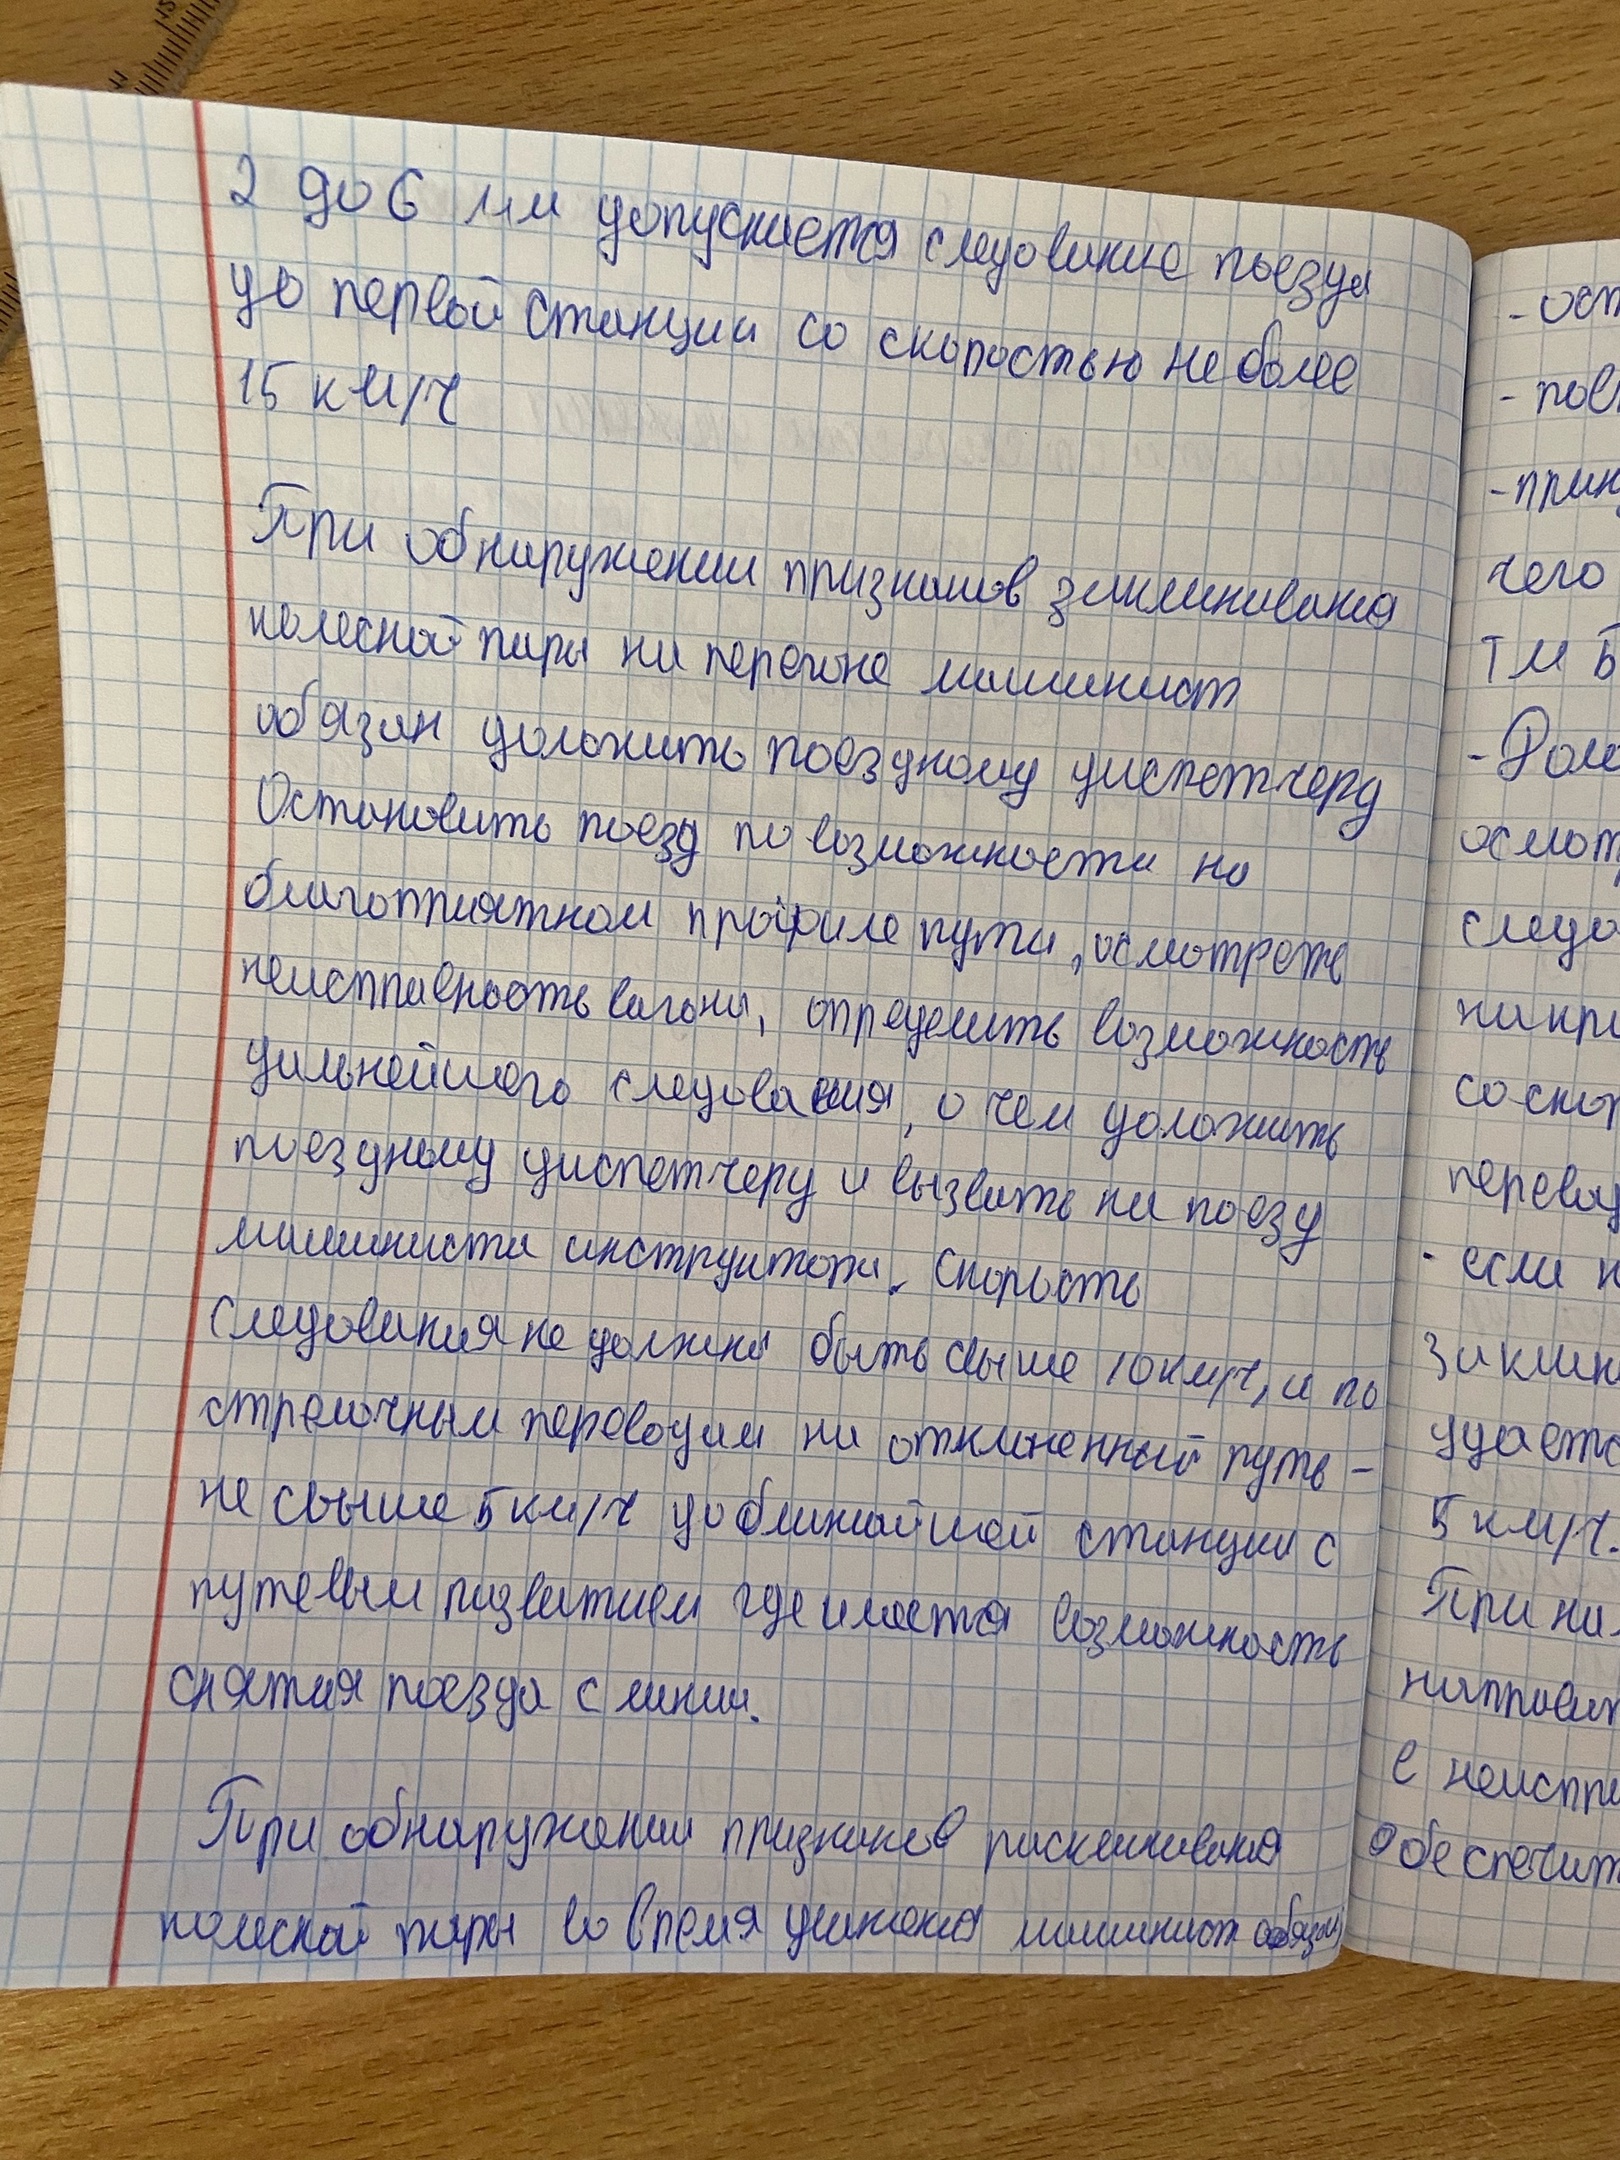 2 до 6 мм допускается следование поезда
до первой станции со скоростью не более
15 км/ч
При обнаружении признаков заклинивания
колесной пары на перегоне машинист
обязан доложить поездному диспетчеру
Остановить поезд по возможности на
благоприятном профиле пути, осмотреть
неисправность вагона, определить возможность
дальнейшего следования, о чем доложить
поездному диспетчеру и вызвать на поезд
машиниста инструктора. Скорость
Следования не должна быть свыше 10 км/ч, и по
стрелочным переводам на отклоненный путь -
не свыше 5 км/ч до ближайшей станции с
путевым развитием где имеется возможность
снятия поезда с линии.
При обнаружении признаков расклинивания
колесной пары во время движения машинист обязан
- ост
- пов
- прин
чего
ТМ Б
- Доло
осмот
следо
на кри
со скор
перевод
- если н
заклин
удаетс
5 км/ч.
При на
направит
с неиспра
Обеспечит